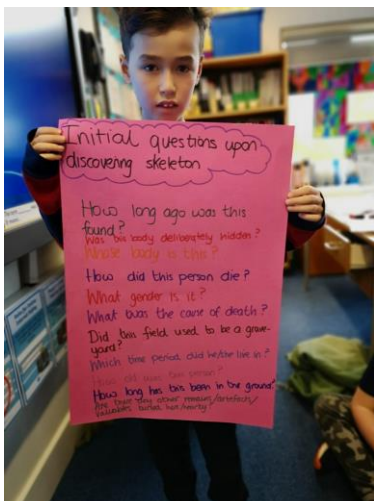 Initial questions upon
discovering skeleton
How long ago was this
found?
Was this body deliberately hidden?
Whose body is this?
How did this person die?
What gender is it?
What was the cause of death?
Did this field used to be a grave-
yard?
Which time period did he/she live in?
How old was this person?
How long has this been in the ground?
Are there any other remains/artefacts/
valuables buried here/nearby?